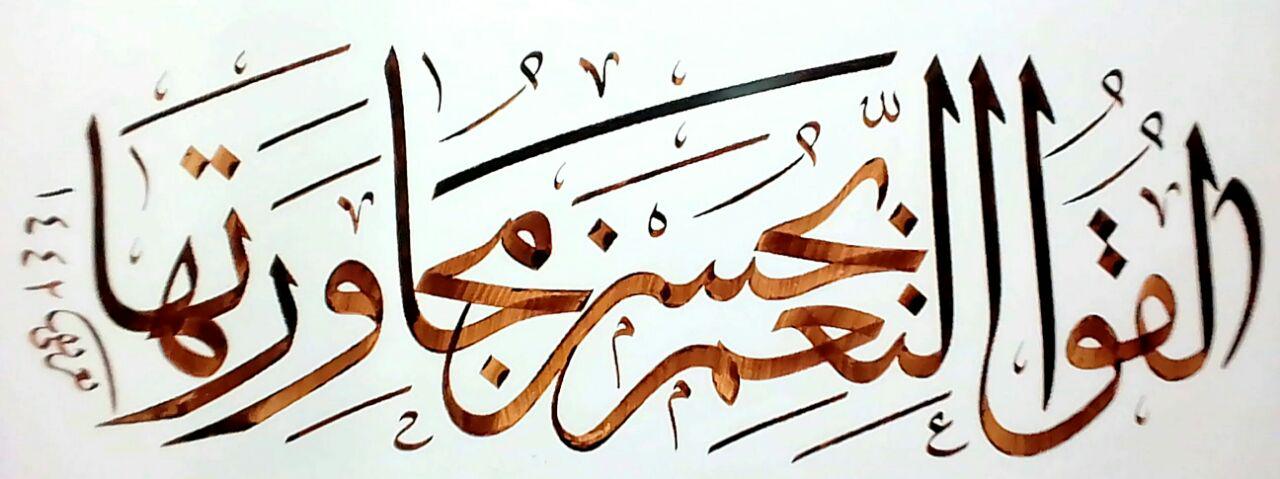 القوا النعم بحسن مجاورتها
١٤٤٢